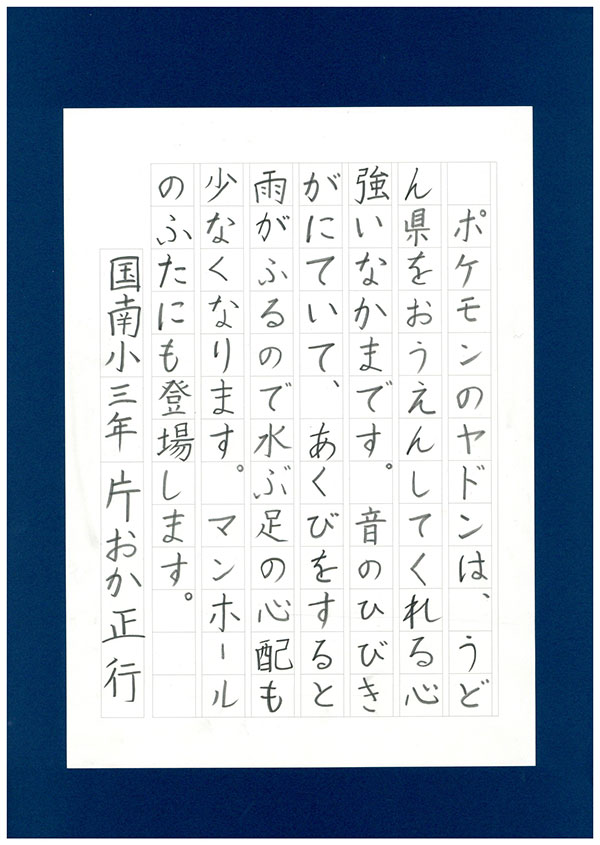 ポケモンのヤドンは、うど
ん県をおうえんしてくれる心
強いなかまです。音のひびき
がにていて、あくびをすると
雨がふるので水ぶ足の心配も
少なくなります。マンホール
のふたにも登場します。
国南小三年 片おか正行